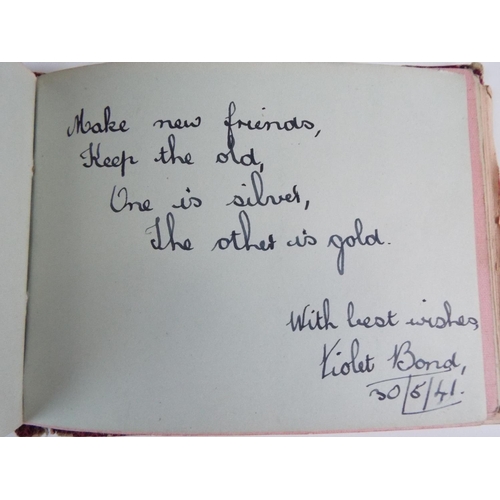 Make new friends,
Keep the old,
One is silver,
The other is gold.
With best wishes
Violet Bond,
30/5/41.